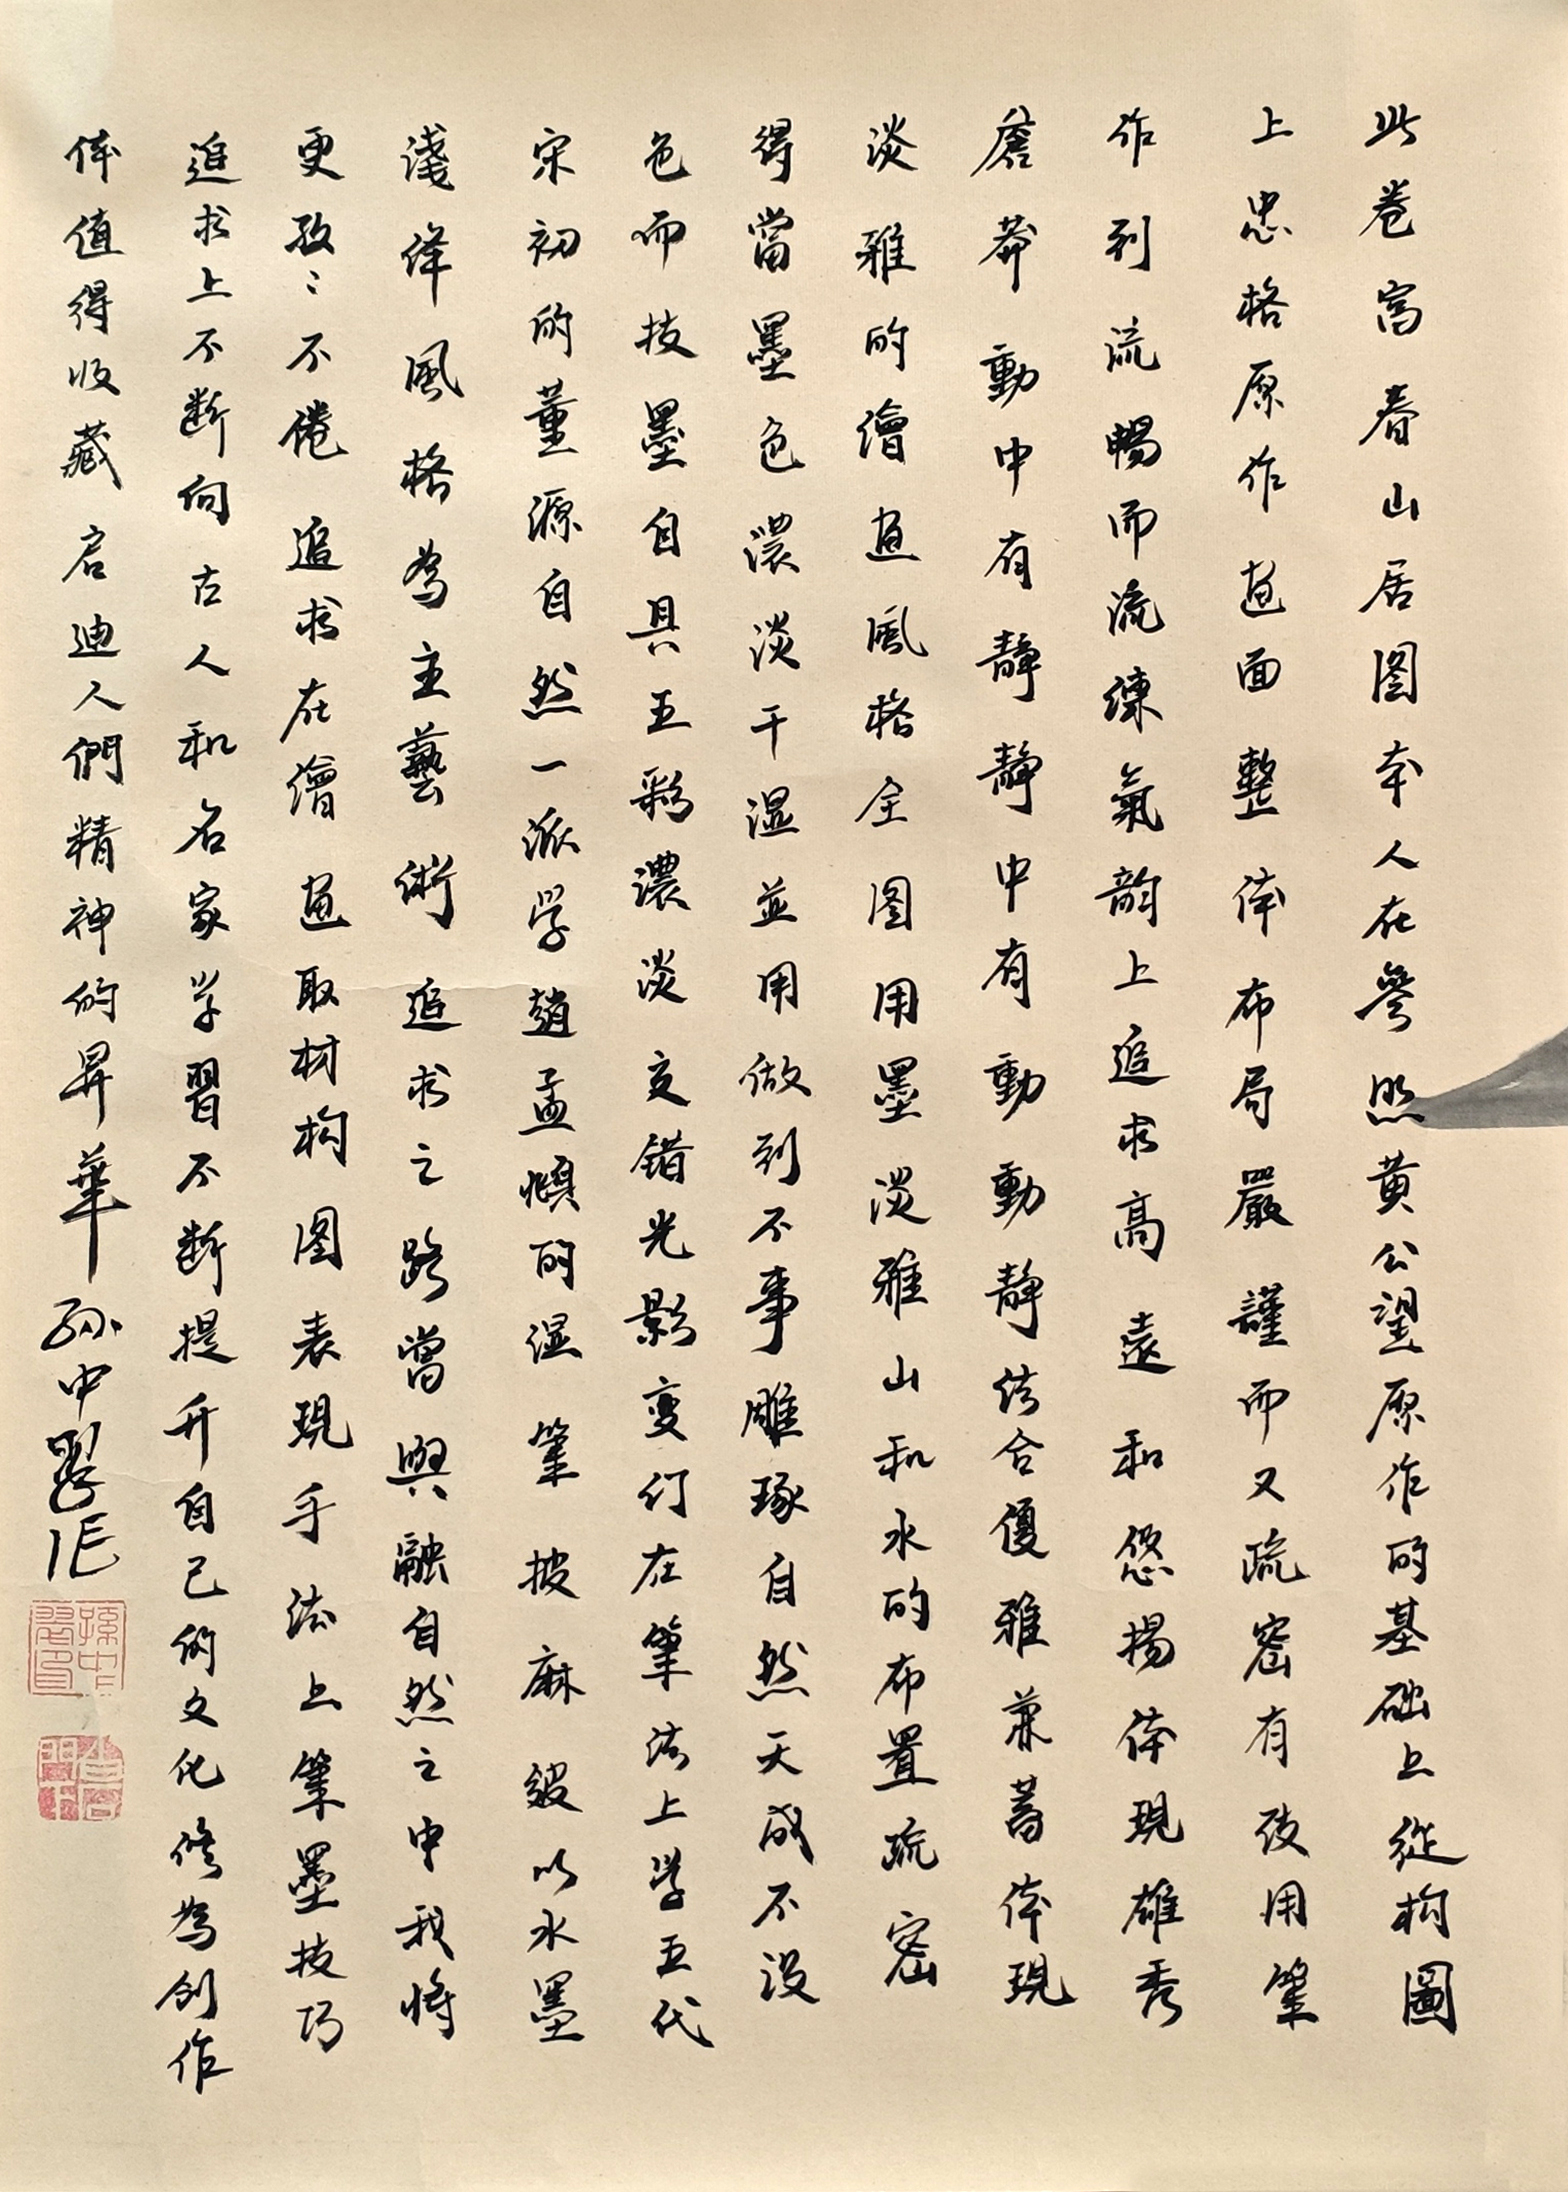 此卷富春山居图本人在參照黄公望原作的基础上從构圖
上忠格原作画面整体布局嚴謹而又疏密有致用筆
作到流暢而流練氣韵上追求高遠和悠揚体現雄秀
蒼莽動中有靜靜中有動動靜结合優雅兼蓄体現
淡雅的繪画風格全图用墨淡雅山和水的布置疏密
得當墨色濃淡干湿並用做到不事雕琢自然天成不设
色而技墨自具五彩濃淡交錯光影变幻在筆法上学五代
宋初的董源自然一派学趙孟頫的湿筆披麻皴以水墨
淺绛風格為主藝術追求之路當與融自然之中我将
更孜〻不倦追求在繪画取材构图表現手法上筆墨技巧
追求上不断向古人和名家学習不断提升自己的文化修為创作
体值得收藏启迪人們精神的昇華孙中翠作